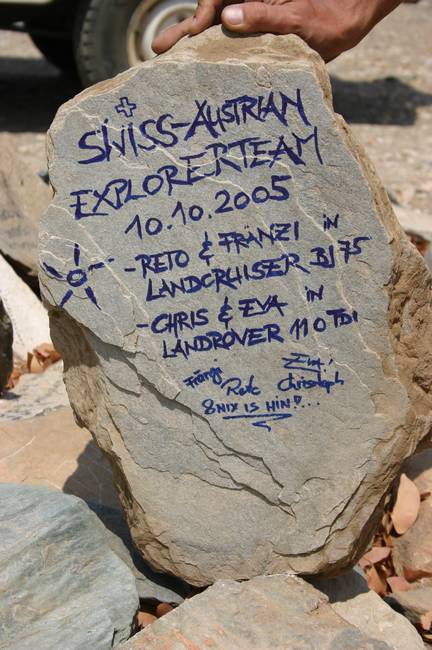 SWISS-AUSTRIAN
EXPLORERTEAM
10.10.2005
-RETO & FRÄNZI IN
LANDCRUISER BJ 75
-CHRIS & EVA IN
LANDROVER 110 TDI
Fränzi Reto Christoph Eva!
&NIX IS HIN!...